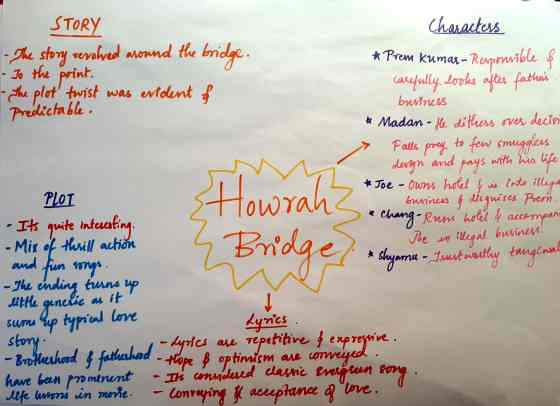 STORY
- The story revolved around the bridge.
- To the point.
- The plot twist was evident &
Predictable.
Characters
* Prem Kumar - Responsible &
carefully looks after father's
business
* Madan - He dithers over decision
Falls prey to few smugglers
design and pays with his life
* Joe - Owns hotel & is into illegal
business & disguises Prem.
* Chang - Runs hotel & accompan
Joe in illegal business.
* Shyamu - Trustworthy
Howrah
Bridge
PLOT
- Its quite interesting.
- Mix of thrill action
and fun songs.
- The ending turns up
little generic as it
sums up typical love
story.
- Brotherhood & fatherhood
have been prominent
life lessons in movie.
Lyrics.
- Lyrics are repetitive & expressive.
- Hope & optimism are conveyed.
- Its considered classic evergreen song.
- Conveying acceptance of love.